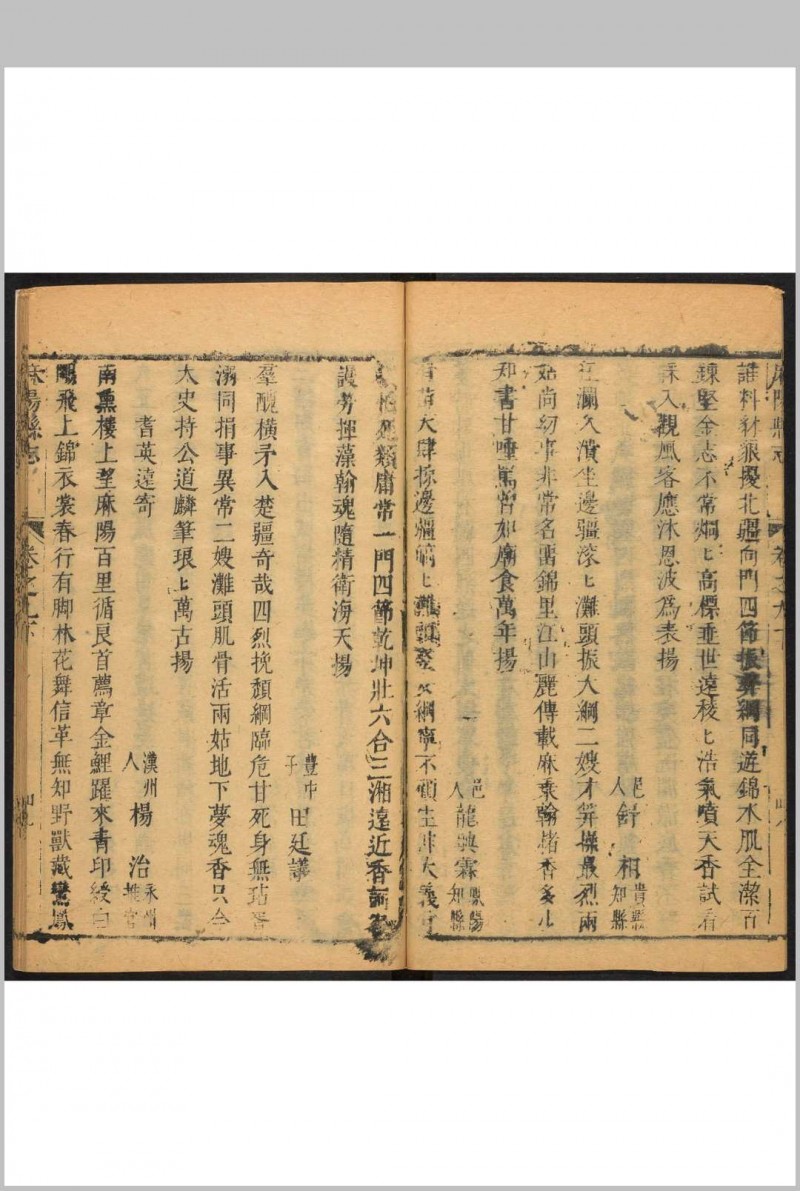 誰料豺狼擾北疆向門四節振彝綱同遊錦水肌全潔百
錬堅金志不常炯〻高標垂世遠稜〻浩氣噴天香試看
採入觀風客應沐恩波為表揚
邑人舒相貴縣知縣
江瀾久潰坐邊疆滚〻灘頭振大綱二嫂才笄操最烈兩
姑尚紉事非常名畱錦里江山麗傳載麻乘翰楮香多少
知書甘唾罵曾如廟食萬年揚
邑人龍興霖鳳陽知縣
苗大肆掠邊疆縞〻灘頭登綱寧不顧生非大義
死類庸常一門四節乾坤壯六合三湘遠近香
謾勞揮藻翰魂隨精衛海天揚
豐中子田廷議
羣醜橫矛入楚疆奇哉四烈挽頹綱臨危甘死身無玷
溺同捐事異常二嫂灘頭肌骨活兩姑地下夢魂香只今
太史持公道麟筆琅〻萬古揚
耆英遠寄
漢州人楊治永州推官
南熏樓上望麻陽百里循良首薦章金鯉躍來青印綬白
鷴飛上錦衣裳春行有脚林花舞信革無知野獸藏鸞鳳
麻陽縣志 卷之九下